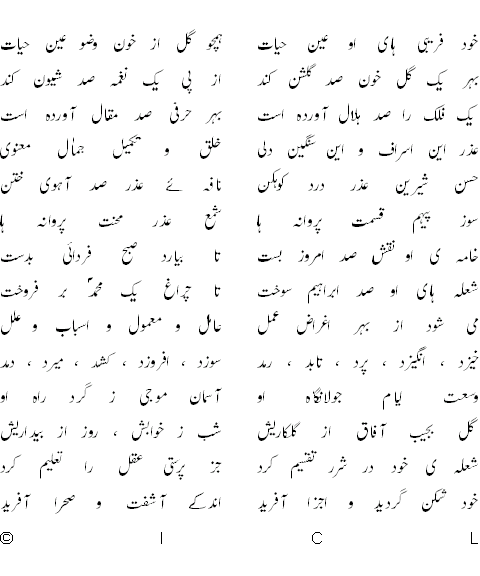 خود فریبی ہای او عین حیات ہمچو گل از خون وضو عین حیات
بہر یک گل خون صد گلشن کند از پی یک نغمہ صد شیون کند
یک فلک را صد ہلال آوردہ است بہر حرفی صد مقال آوردہ است
عذر این اسراف و این سنگین دلی خلق و تکمیل جمال معنوی
حسن شیرین عذر درد کوہکن نافہ ئے عذر صد آہوی ختن
سوز پیہم قسمت پروانہ ہا شمع عذر محنت پروانہ ہا
خامہ ی او نقش صد امروز بست تا بیارد صبح فردائی بدست
شعلہ ہای او صد ابراہیم سوخت تا چراغ یک محمدؐ بر فروخت
می شود از بہر اغراض عمل عامل و معمول و اسباب و علل
خیزد ، انگیزد ، پرد ، تابد ، رمد سوزد ، افروزد ، کشد ، میرد ، دمد
وسعت ایام جولانگاہ او آسمان موجی ز گرد راہ او
گل بجیب آفاق از گلکاریش شب ز خوابش ، روز از بیداریش
شعلہ ی خود در شرر تقسیم کرد جز پرستی عقل را تعلیم کرد
خود شکن گردید و اجزا آفرید اندکے آشفت و صحرا آفرید
© I C L